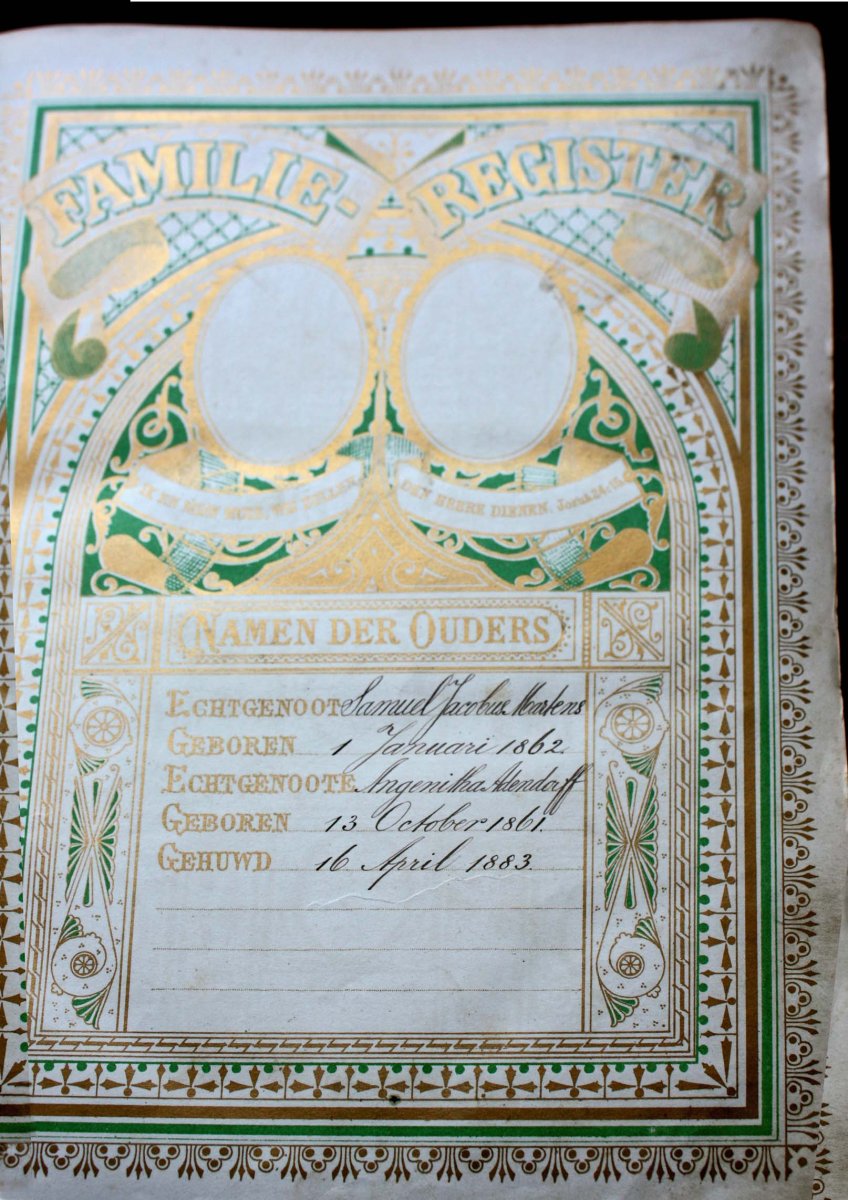 FAMILIE-REGISTER
IK EN MIJN HUIS, WIJ ZULLEN DEN HEERE DIENEN. Josua 24:15
NAMEN DER OUDERS
ECHTGENOOT Samuel Jacobus Martens
GEBOREN 1 Januari 1862.
ECHTGENOOTE Angenitha Adendorff
GEBOREN 13 October 1861.
GEHUWD 16 April 1883.